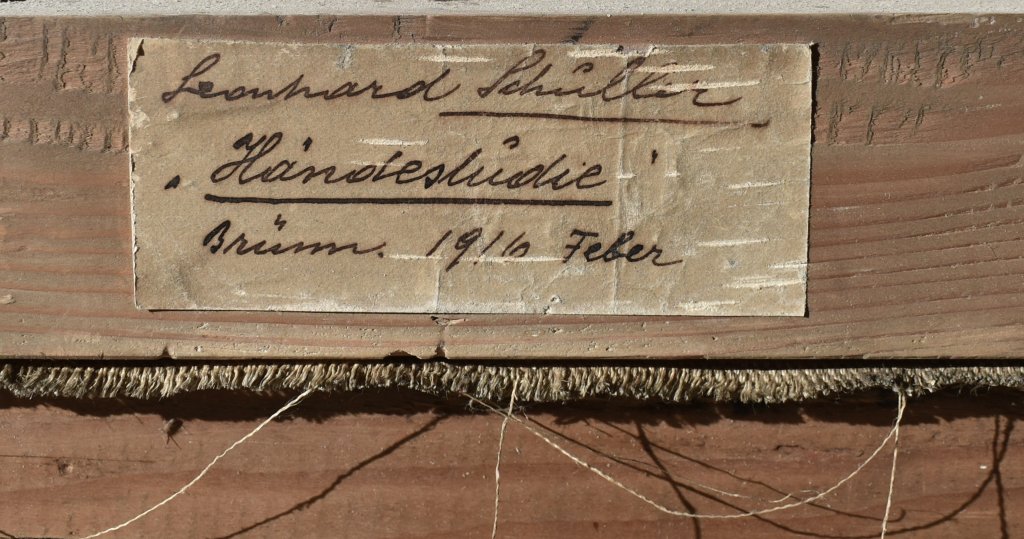 Leonhard Schüller
„Händestudie"
Brünn. 1916 Feber